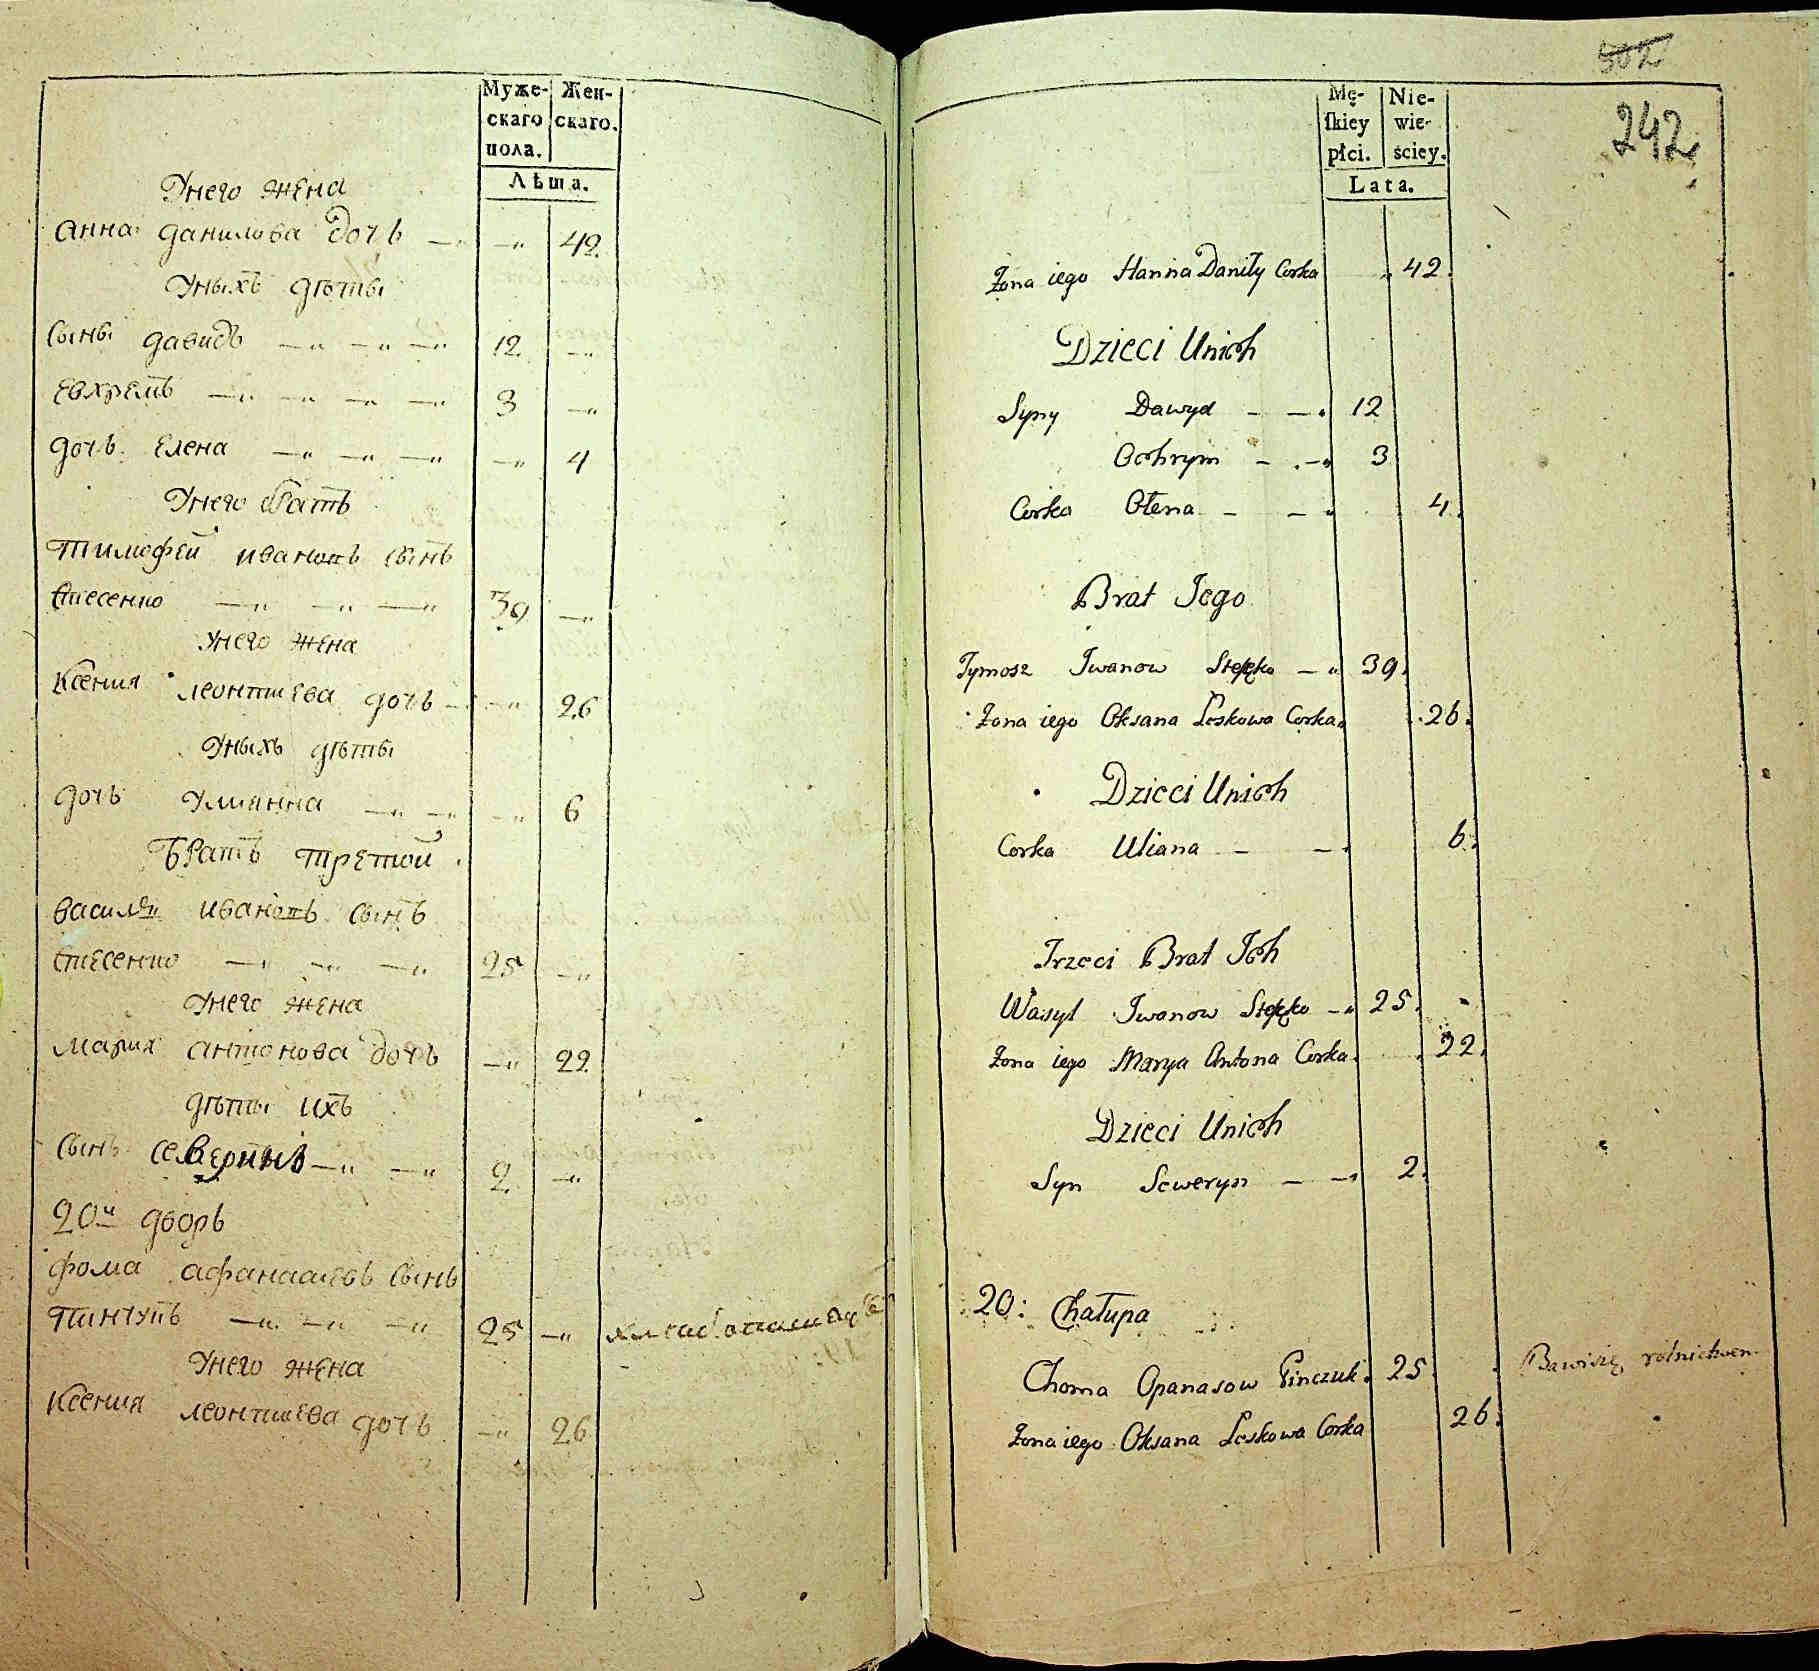 Муже-
скаго
пола.
Жен-
скаго.
Лѣта.
Унего жена
Анна данилова дочь — „ — „ 42
Уныхъ дѣты
Сыны давидъ — „ — „ — „ 12 — „
Евхремъ — „ — „ — „ — „ 3 — „
дочь Елена — „ — „ — „ — „ 4
Унего братъ
Тимофей ивановъ сынъ
— „ — „ — „ 39 — „
Унего жена
Ксения леонтиева дочь — „ — „ 26
Уныхъ дѣты
дочь Улианна — „ — „ — „ 6
Братъ третой
василей ивановъ сынъ
— „ — „ — „ 25 — „
Унего жена
Мария антонова дочь — „ 22
дѣты ихъ
Сынъ — „ — „ 2 — „
20й дворъ
Фома афанасиевъ сынъ
Пинчукъ — „ — „ — „ 25 — „
Унего жена
Ксения леонтиева дочь — „ 26
502
242
Mę-
ſkiey
płci.
Nie-
wie-
ściey.
Lata.
Żona iego Hanna Daniły Corka „ 42.
Dzieci Unich
Syny Dawyd — — „ 12
Ochrym — — „ 3
Corka Ołena — — „ 4.
Brat Jego
Tymosz Iwanow — „ 39.
Żona iego Oksana Leskowa Corka. 26.
Dzieci Unich
Corka Uliana — — 6.
Trzeci Brat Ich
Wasyl Iwanow — „ 25.
Żona iego Marya Antona Corka. 22.
Dzieci Unich
Syn Seweryn — — „ 2.
20: Chałupa
Choma Opanasow Pinczuk. 25. Bawi się rolnictwem
Żona iego Oksana Leskowa Corka 26.